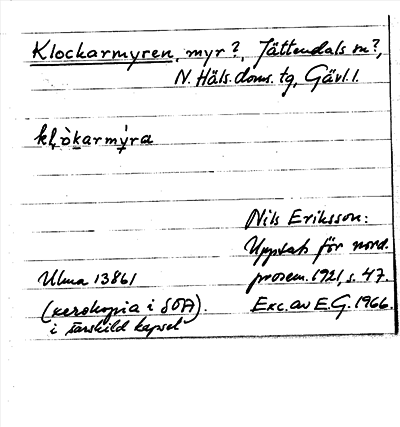 Klockarmyren, myr?, Jättendals sn?,
N. Häls. doms. tg, Gävl. l.
klò̩karmy̩ra
Nils Eriksson:
Uppsats för nord.
Ulma 13861 prosem. 1921, s. 47.
(xerokopia i SOA). Exc. av E.G. 1966.
i särskild kapsel